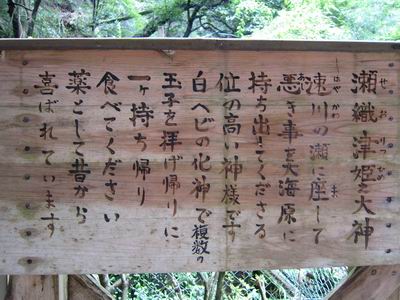 瀬織津姫大神
速川の瀬に座して
悪き事を大海原に
持ち出てくださる
位の高い神様です
白ヘビの化神で複数の
玉子を拝げ帰りに
一ヶ持ち帰り
食べてください
薬として昔から
喜ばれています